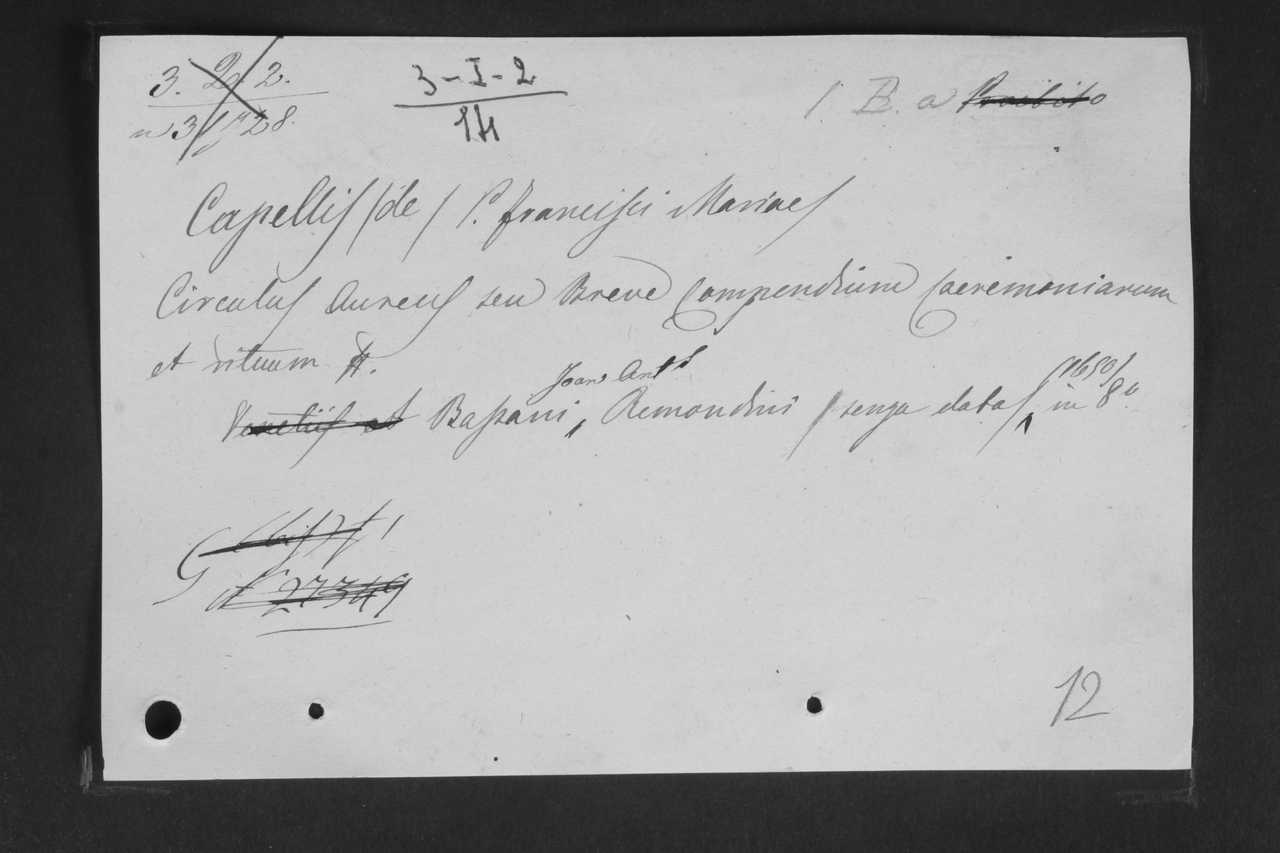 3. 2. 2. 3-I-2 1. B. a Proibito
n 3/1728. 14
Capellis /de/ P. Francisci Mariae
Circulus Aureus seu Breve Compendium Caeremoniarum
et rituum &.
Joan: Ant:
Venetiis et Bassani, Remondini /senza data/ /1650/ in 8.º
G
27349
12